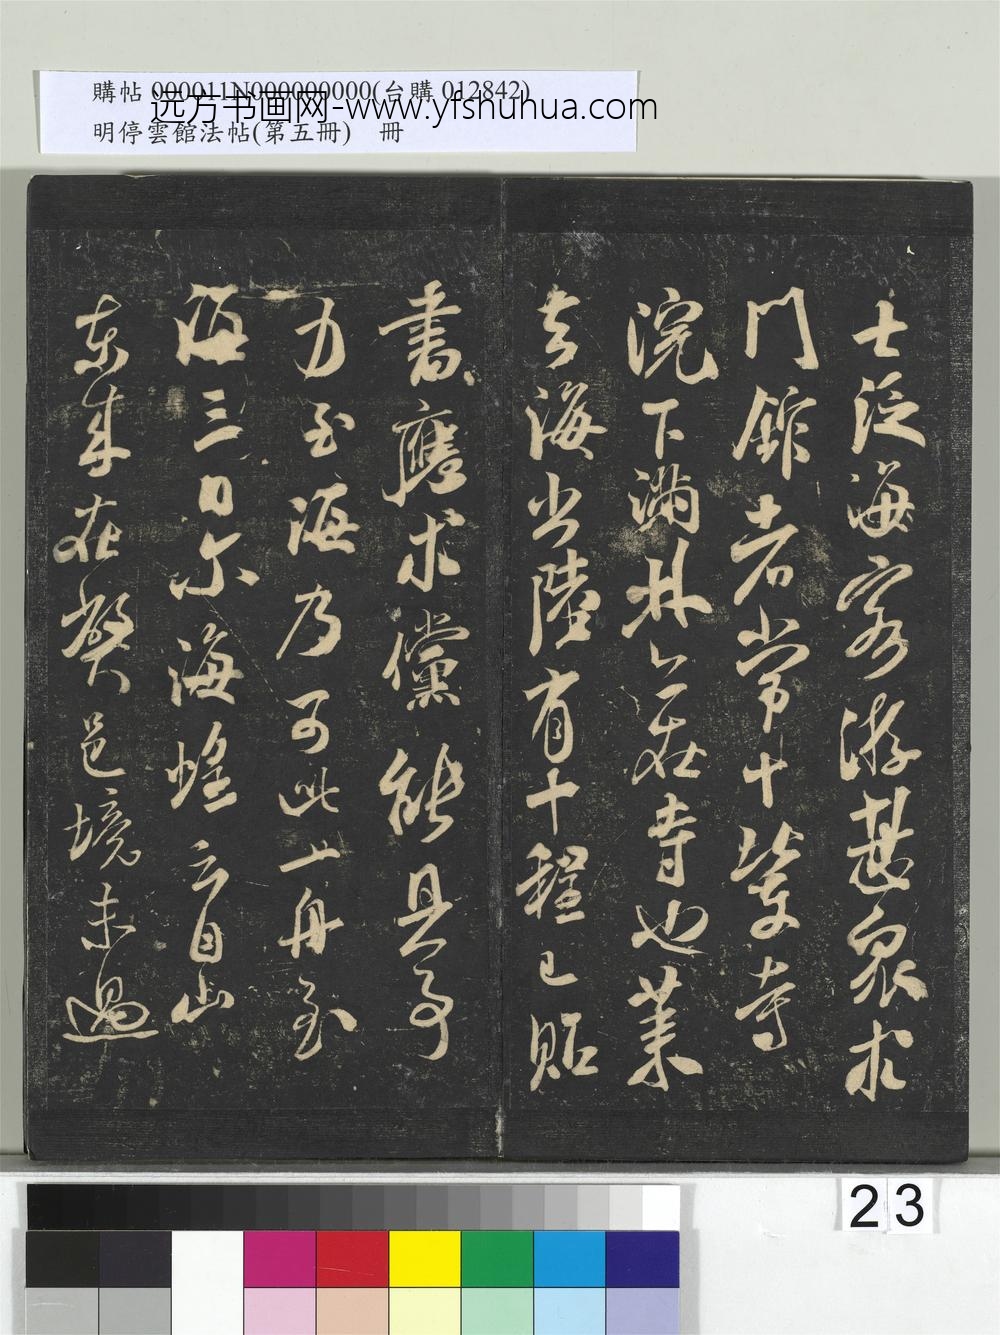 購帖 000011N000000000(台購 012842)
远方书画网-www.yfshuhua.com
明停雲館法帖(第五冊) 冊
士泛海客游甚衆求
門館者常十輩寺
浣下滿林在寺也業
去海出陸有十程已貽
書應求儻能具舟
力至海乃可此一舟至
海三日尔海蝗云自山
東来在弊邑境未過
23